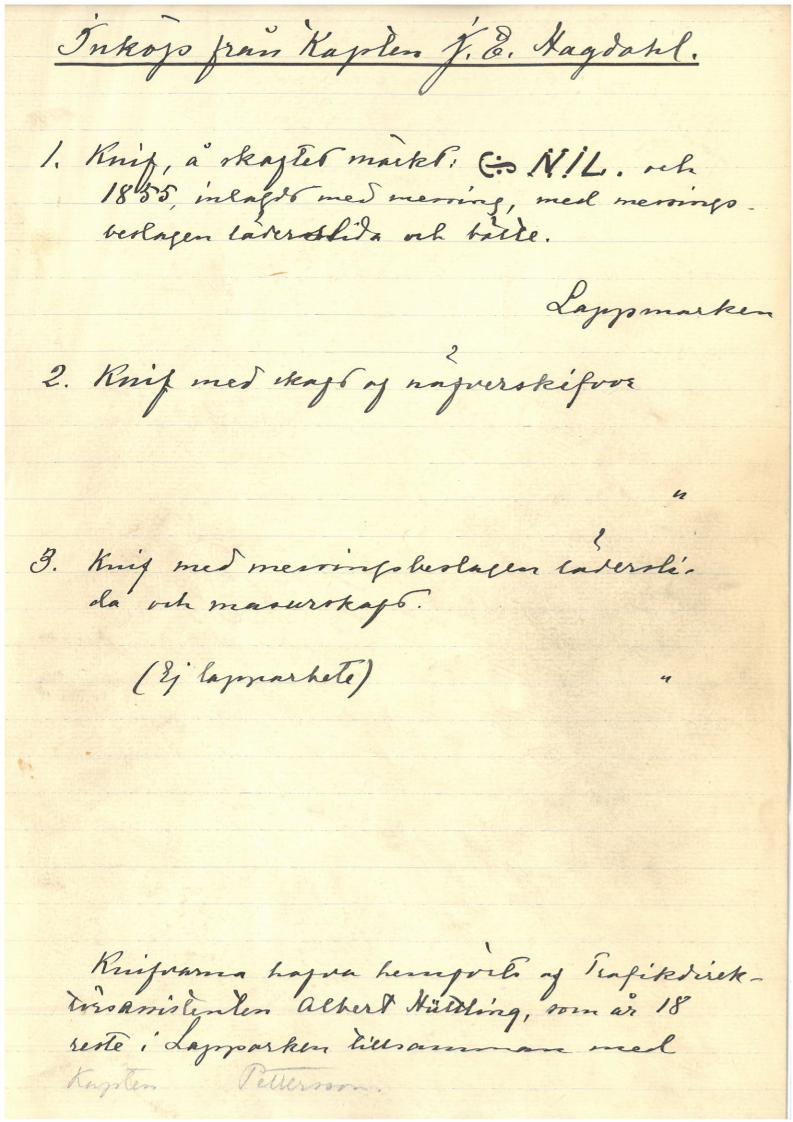 Inköp från Kapten J. E. Hagdahl.
1. Knif, å skaftet märkt: (÷) NIL. och
1855, inlagdt med messing, med messings-
beslagen läderslida och bälte.
Lappmarken
2. Knif med skaft af näfverskifvor
"
3. Knif med messingsbeslagen lädersli-
da och masurskaft.
(Ej lapparbete) "
Knifvarna hafva hemförts af Trafikdirek-
törsassistenten Albert Hüttling, som år 18
reste i Lapparken tillsamman med
Kapten Pettersson.